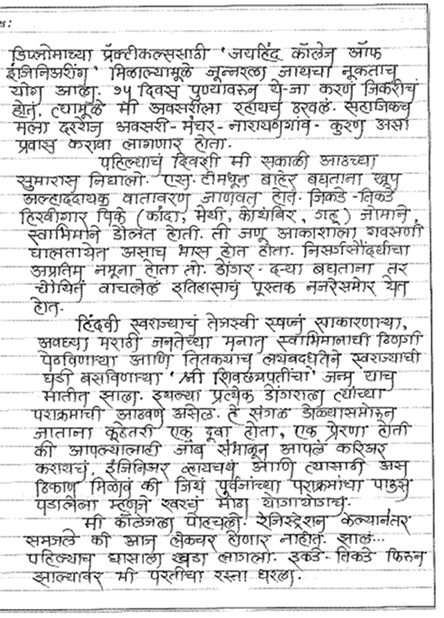 डिप्लोमाच्या प्रॅक्टीकल्ससाठी 'जयहिंद कॉलेज ऑफ
इंजिनिअरींग' मिळाल्यामुळे जून्नरला जायचा नूकताच
योग आला. १५ दिवस पुण्यावरुन ये-जा करणं जिकरीचं
होतं, त्यामुळे मी अवसरीला रहायचं ठरवलं. साहजिकच
मला दररोज अवसरी-मंचर-नारायणगांव-कुरण असा
प्रवास करावा लागणार होता.
पहिल्याच दिवशी मी सकाळी आठच्या
सुमारास निघालो. एस. टीमधून बाहेर बघताना खूप
अल्हाददायक वातावरण जाणवत होते. जिकडे-तिकडे
हिरवीगार पिके (कांदा, मेथी, कोथंबिर, गहू) जोमाने,
स्वाभिमाने डोलत होती. ती जणू आकाशाला गवसणी
घालतायेत असाच भास होत होता. निसर्गसौंदर्याचा
अप्रतिम नमूना होता तो. डोंगर-दऱ्या बघताना तर
चौथीतं वाचलेलं इतिहासाचं पूस्तक नजरेसमोर येत
होतं.
हिंदवी स्वराज्याचं तेजस्वी स्वप्नं साकारणाऱ्या,
अवघ्या मराठी जनतेच्या मनात स्वाभिमानाची ठिणगी
पेटविणाऱ्या आणि तितक्याच लयबद्धतेने स्वराज्याची
घडी बसविणाऱ्या 'श्री शिवछत्रपतींचा' जन्म याच
मातीत झाला. इथल्या प्रत्येक डोंगराला त्यांच्या
पराक्रमाची आठवण असेल. हे सगळं डोळ्यासमोरून
जाताना कुठेतरी एक दूवा होता, एक प्रेरणा होती
की आपल्यालाही जॉब संभाळून आपलं करिअर
करायचं, इंजिनिअर व्हायचयं आणि त्यासाठी असं
ठिकाण मिळावं की जिथं पुर्वजांच्या पराक्रमांचा पाऊस
पडलेला म्हणजे खरचं मोठा योगायोगाचं.
मी कॉलेजला पोहचलो. रेजिस्ट्रेशन केल्यानंतर
समजले की आज लेक्चर होणार नाहीत. झालं...
पहिल्याच घासाला खडा लागला. इकडे-तिकडे फिरून
झाल्यावर मी परतीचा रस्ता धरला.